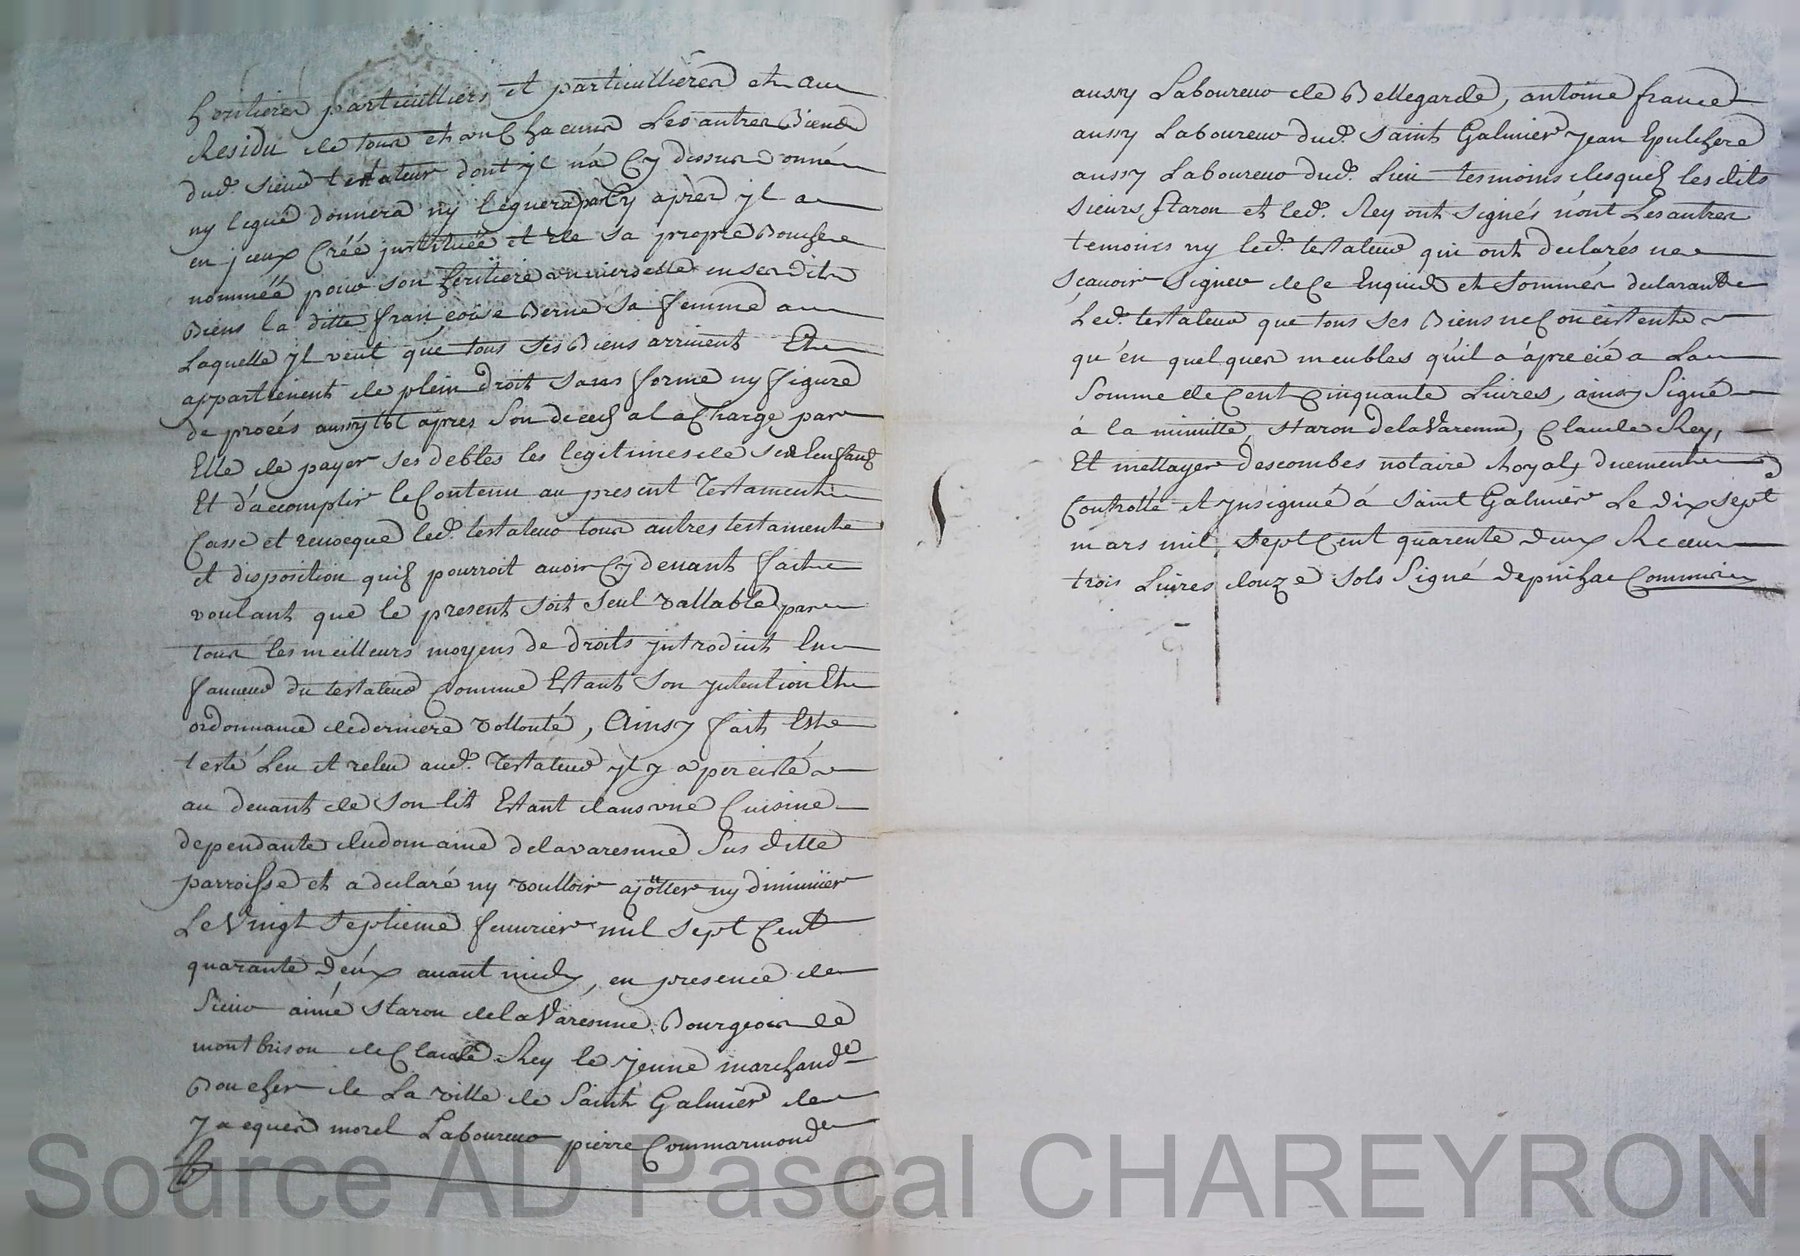 heritiers particulliers et particullieres et au
Residu de tous et un Chacuns Les autres Biens
dud. sieur testateur dont yl n'a Cy dessus donné
ny legué donnera ny leguera par Cy après yl a
en jceux Créé jnstituéé et de sa propre Bouche
nomméé pour son heritiere universelle en ses dits
Biens la ditte françoise Berne sa femme a
Laquelle yl veut que tous ses Biens arrivent Et
appartienent de plein droit sans forme ny figure
de procés aussytot apres son deceds a la Charge par
Elle de payer ses debtes les legitimes de ses Enfans
Et d'accomplir le Contenu au present Testament
Casse et revoeque led. testateur tous autres testament
et disposition quil pourroit avoir Cy devant fait
voulant que le present soit seul vallable par
tous les meilleurs moyens de droits jntroduit En
faveur du testateur Comme Estant son jntention Et
ordonnance de derniere vollonté, Ainsy fait Est
testé Leu et releu aud. Testateur yl y a percisté
au devant de son lit Estant dans une Cuisine
dependante du domaine de la varenne sus ditte
parroisse et a declaré ny voulloir ajötter ny diminüer
Le Vingt septieme fevvrier mil sept Cent
quarante deux avant midy, en presence de
sieur aimé Staron de la Varenne Bourgeois de
montbrison de Claude Rey le jeune marchand
Boucher de La ville de Saint Galmier de
Jacques morel Laboureur pierre Commarmond
aussy Laboureur de Bellegarde, antoine france
aussy Laboureur dud. Saint Galmier jean Epulchere
aussy Laboureur dud. Lieu tesmoins desquels les dits
sieurs Staron et led. Rey ont signés n'ont Les autres
temoins ny led. testateur qui ont declarés ne
sçavoir signer de Ce Enquis et sommés declarant
Led. testateur que tous ses Biens ne Concistent
qu'en quelques meubles qu'il a âprecié a La
somme de Cent Cinquante Livres, ainsy signé
à la minutte, Staron de la Varenne, Claude Rey,
Et mettayer descombes notaire Royal, duement
Controllé et jnsignué à Saint Galmier Le dix sept
mars mil sept Cent quarente deux Receu
trois Livres douze sols signé Depinhac Commis
Source AD Pascal CHAREYRON